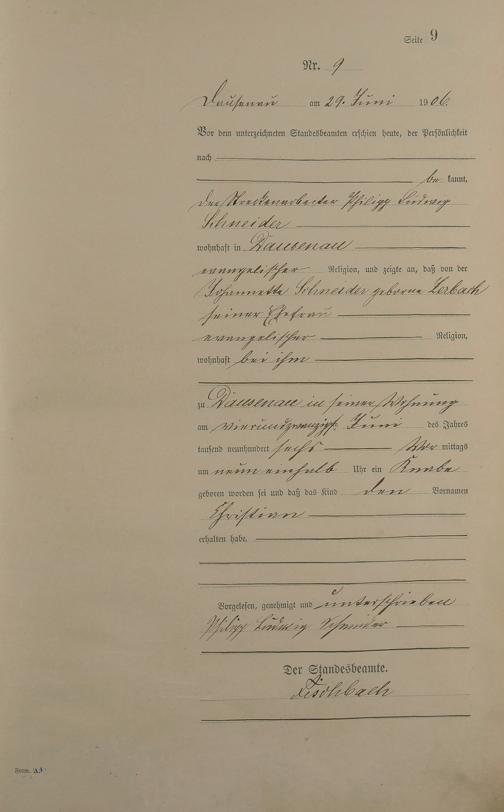 Seite 9
Nr. 9
Dausenau am 29. Juni 1906.
Vor dem unterzeichneten Standesbeamten erschien heute, der Persönlichkeit
nach
be kannt,
der Streckenarbeiter Philipp Ludwig
Schneider
wohnhaft in Dausenau
evangelischer Religion, und zeigte an, daß von der
Johannette Schneider geborne Lerbach
seiner Ehefrau
evangelischer Religion,
wohnhaft bei ihm
zu Dausenau in seiner Wohnung
am vierundzwanzigst. Juni des Jahres
tausend neunhundert sechs Vor mittags
um neun einhalb Uhr ein Knabe
geboren worden sei und daß das Kind den Vornamen
Christian
erhalten habe.
Vorgelesen, genehmigt und unterschrieben
Philipp Ludwig Schneider
Der Standesbeamte.
Fischbach
Form. A